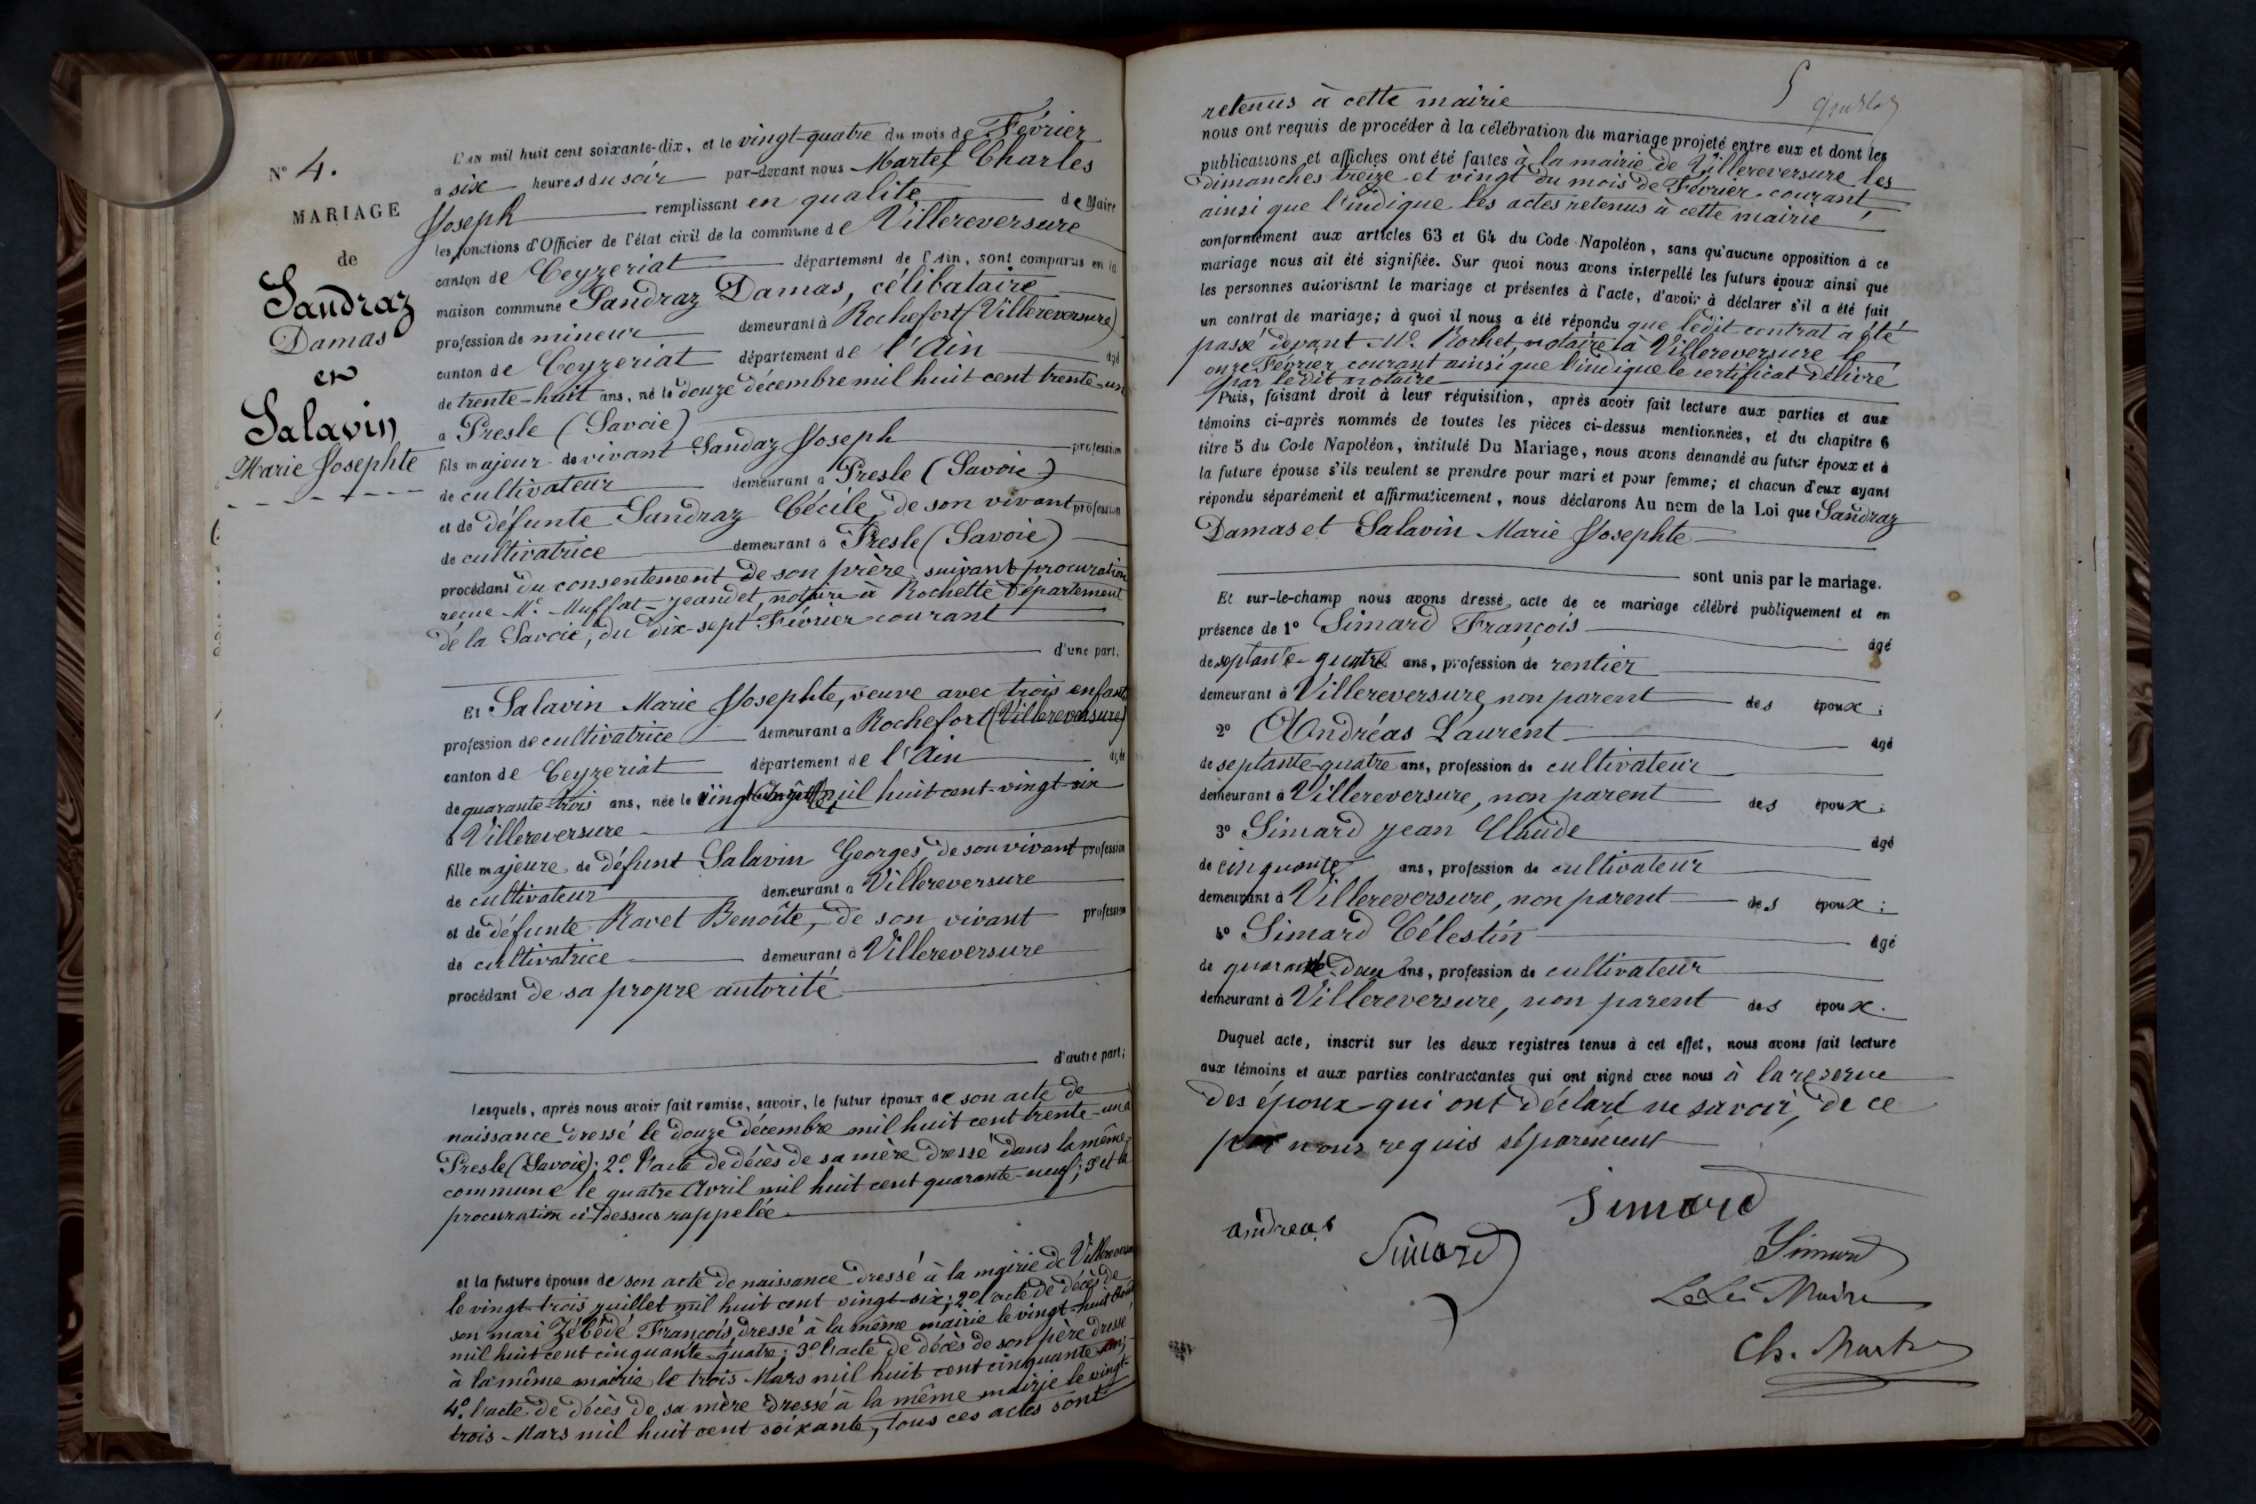 N° 4.
MARIAGE
de
Sandraz
Damas
et
Salavin
Marie Josephte
L'AN mil huit cent soixante-dix, et le vingt-quatre du mois de Février
à six heures du soir par-devant nous Martel Charles
Joseph remplissant en qualité de Maire
les fonctions d'Officier de l'état civil de la commune de Villereversure
canton de Ceyzeriat département de l'Ain, sont comparus en la
maison commune Sandraz Damas, célibataire
profession de mineur demeurant à Rochefort (Villereversure)
canton de Ceyzeriat département de l'Ain âgé
de trente-huit ans, né le douze décembre mil huit cent trente-un
à Presle (Savoie)
fils majeur de vivant Sandaz Joseph profession
de cultivateur demeurant à Presle (Savoie)
et de défunte Sandraz Cécile, de son vivant profession
de cultivatrice demeurant à Presle (Savoie)
procédant du consentement de son père, suivant procuration
reçue Me. Muffat-Jeandet, notaire à Rochette Département
de la Savoie, du dix-sept Février courant
d'une part.
Et Salavin Marie Josephte, veuve avec trois enfants
profession de cultivatrice demeurant à Rochefort (Villereversure)
canton de Ceyzeriat département de l'Ain âgée
de quarante-trois ans, née le mil huit cent vingt-six
à Villereversure
fille majeure de défunt Salavin Georges, de son vivant profession
de cultivateur demeurant à Villereversure
et de défunte Ravet Benoîte, de son vivant profession
de cultivatrice demeurant à Villereversure
procédant de sa propre autorité
d'autre part;
Lesquels, après nous avoir fait remise, savoir, le futur époux de son acte de
naissance dressé le douze décembre mil huit cent trente-un à
Presle (Savoie); 2° l'acte de décès de sa mère dressé dans la même
commune le quatre Avril mil huit cent quarante-neuf; 3° et la
procuration ci-dessus rappelée
et la future épouse de son acte de naissance dressé à la mairie de Villereversure
le vingt-trois juillet mil huit cent vingt-six; 2° l'acte de décès de
son mari Zébédé François, dressé à la même mairie le vingt-huit
mil huit cent cinquante-quatre; 3° l'acte de décès de son père dressé
à la même mairie le trois Mars mil huit cent cinquante
4° l'acte de décès de sa mère dressé à la même mairie le vingt-
trois Mars mil huit cent soixante, tous ces actes sont
5
retenus à cette mairie
nous ont requis de procéder à la célébration du mariage projeté entre eux et dont les
publications et affiches ont été faites à la mairie de Villereversure les
dimanches treize et vingt du mois de Février courant,
ainsi que l'indique les actes retenus à cette mairie
conformément aux articles 63 et 64 du Code Napoléon, sans qu'aucune opposition à ce
mariage nous ait été signifiée. Sur quoi nous avons interpellé les futurs époux ainsi que
les personnes autorisant le mariage et présentes à l'acte, d'avoir à déclarer s'il a été fait
un contrat de mariage; à quoi il nous a été répondu que ledit contrat a été
passé devant Me. Rochet, notaire à Villereversure le
onze Février courant ainsi que l'indique le certificat délivré
par ledit notaire
Puis, faisant droit à leur réquisition, après avoir fait lecture aux parties et aux
témoins ci-après nommés de toutes les pièces ci-dessus mentionnées, et du chapitre 6
titre 5 du Code Napoléon, intitulé Du Mariage, nous avons demandé au futur époux et à
la future épouse s'ils veulent se prendre pour mari et pour femme; et chacun d'eux ayant
répondu séparément et affirmativement, nous déclarons Au nom de la Loi que Sandraz
Damas et Salavin Marie Josephte
sont unis par le mariage.
Et sur-le-champ nous avons dressé acte de ce mariage célébré publiquement et en
présence de 1° Simard François âgé
de septante-quatre ans, profession de rentier
demeurant à Villereversure, non parent des époux;
2° Andréas Laurent âgé
de septante-quatre ans, profession de cultivateur
demeurant à Villereversure, non parent des époux;
3° Simard Jean Claude âgé
de cinquante ans, profession de cultivateur
demeurant à Villereversure, non parent des époux;
4° Simard Célestin âgé
de quarante-deux ans, profession de cultivateur
demeurant à Villereversure, non parent des époux.
Duquel acte, inscrit sur les deux registres tenus à cet effet, nous avons fait lecture
aux témoins et aux parties contractantes qui ont signé avec nous à la reserve
des époux qui ont déclaré ne savoir, de ce
par nous requis séparément
Simard
andreas
Simard
Simard
Le Maire
Ch. Martel